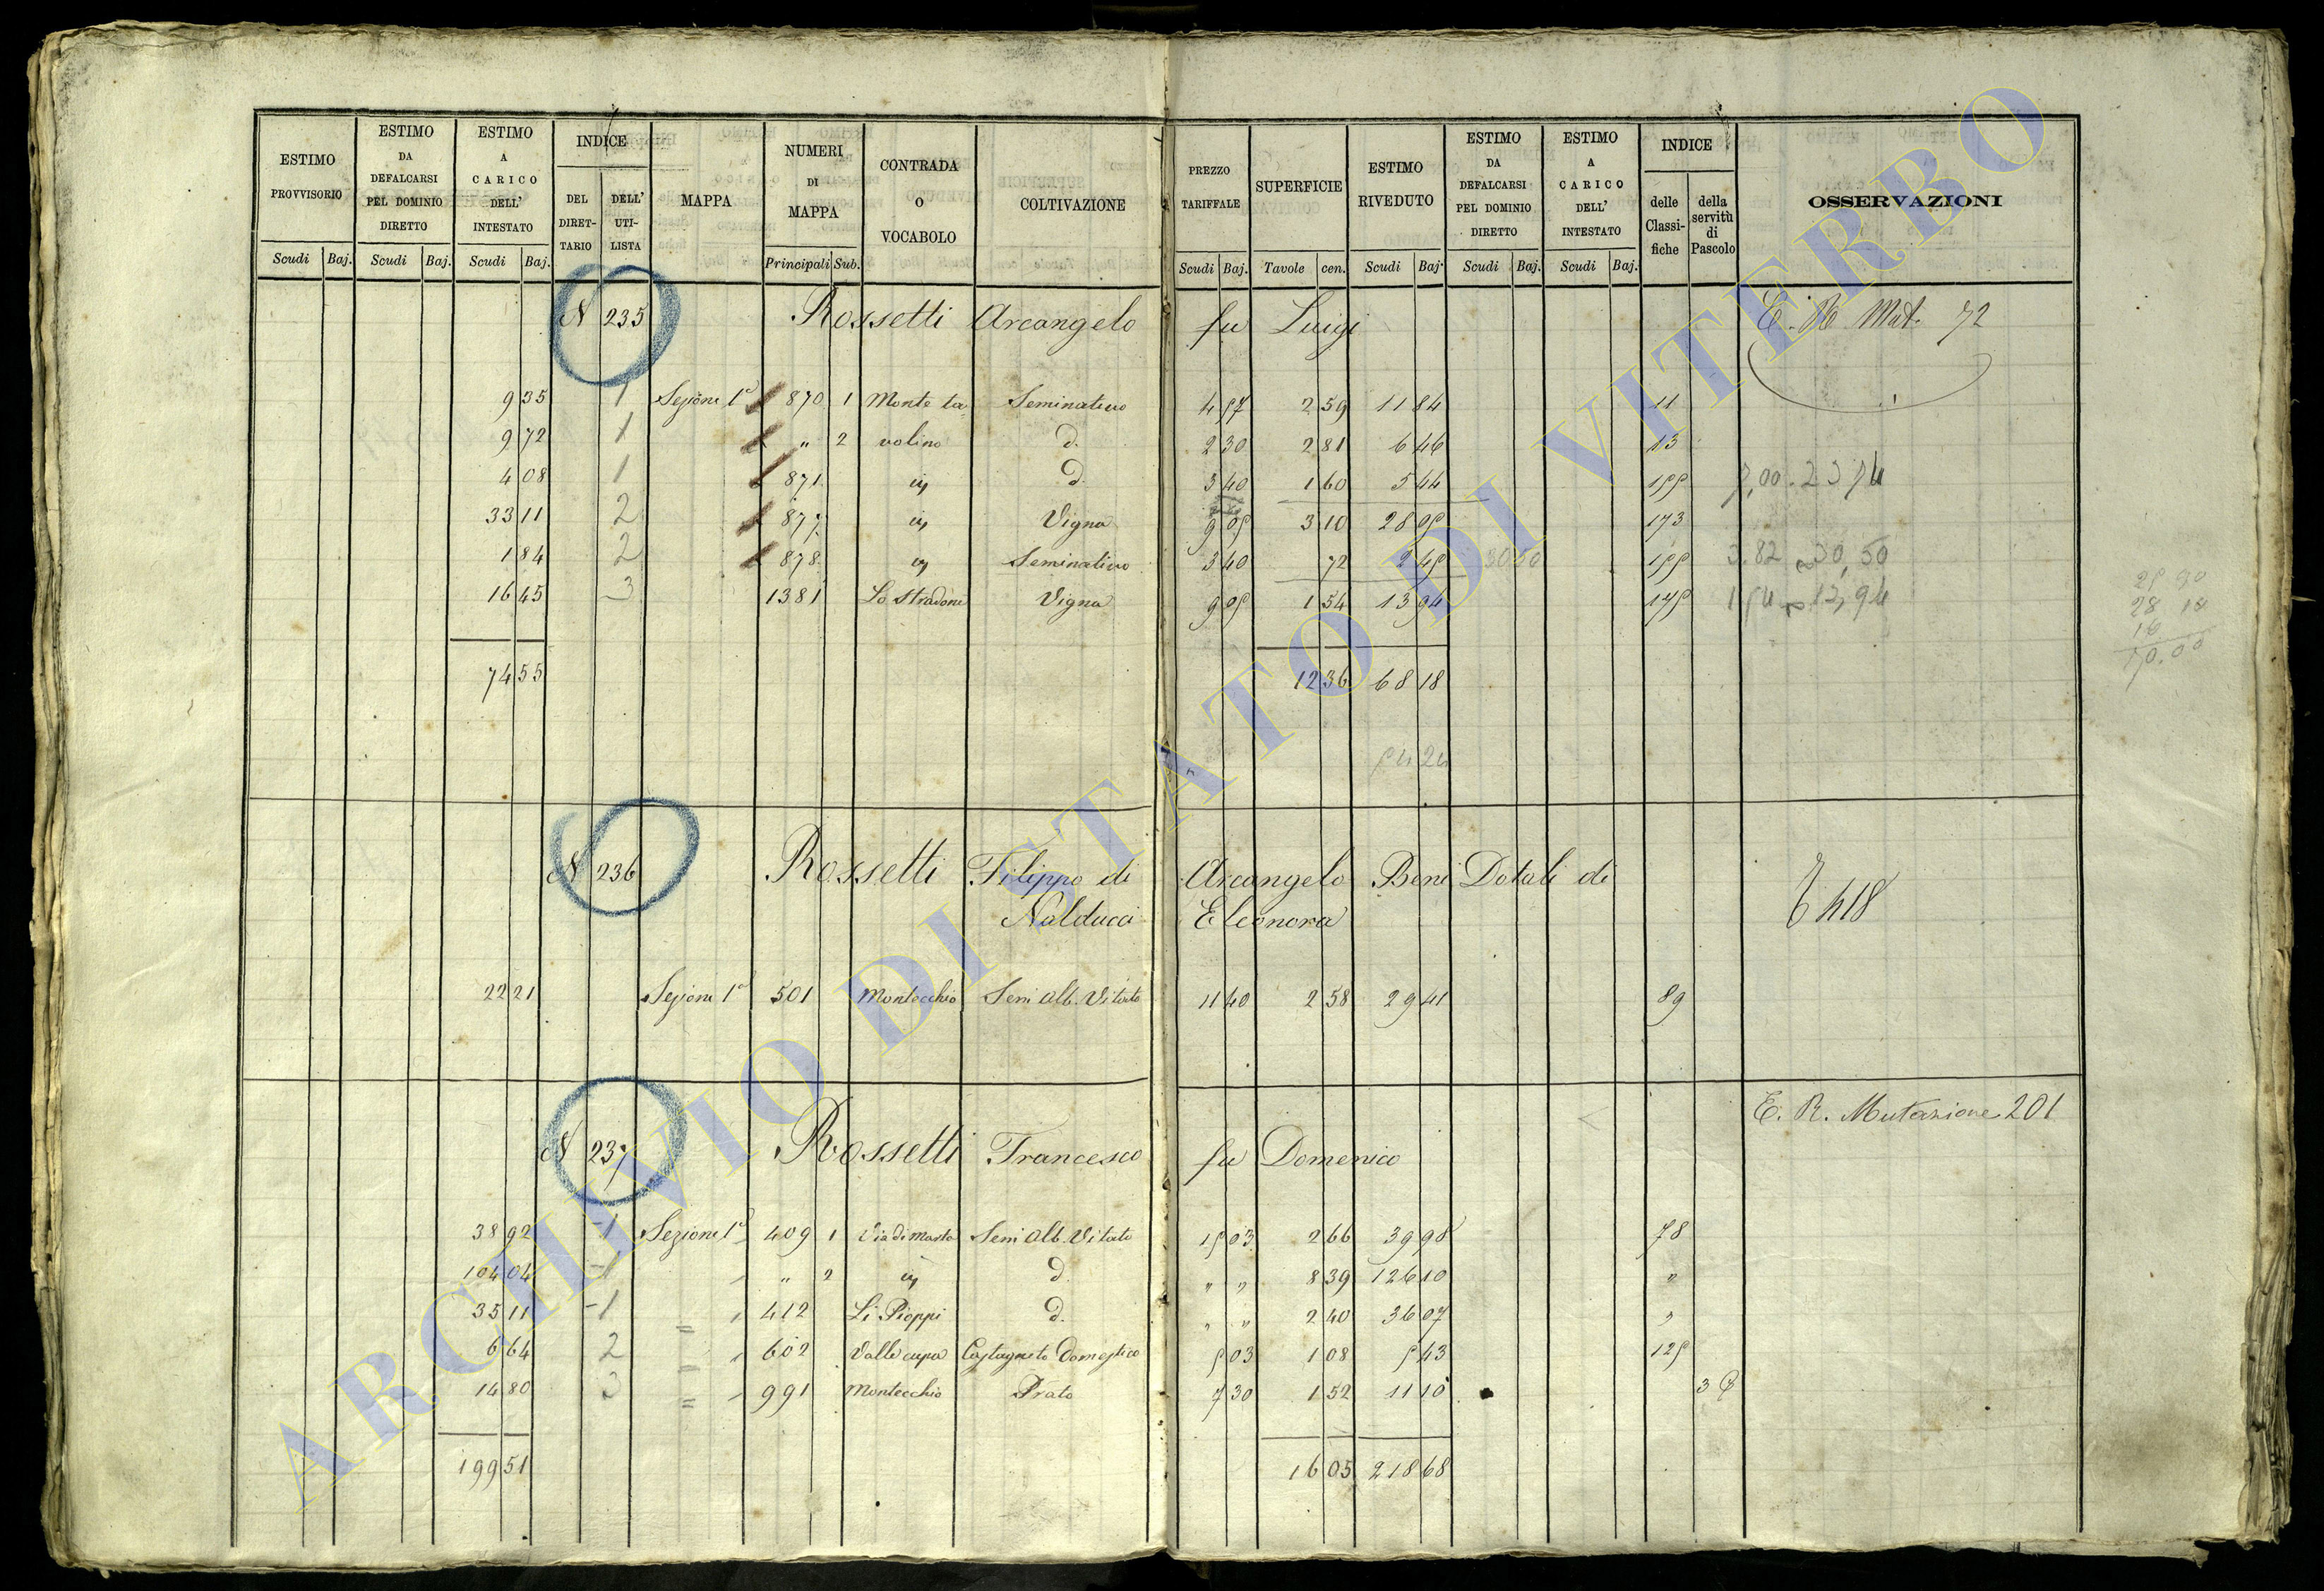 ESTIMO PROVVISORIO
Scudi Baj.
ESTIMO DA DEFALCARSI PEL DOMINIO DIRETTO
Scudi Baj.
ESTIMO A CARICO DELL' INTESTATO
Scudi Baj.
INDICE
DEL DIRET-TARIO
DELL' UTI-LISTA
MAPPA
NUMERI DI MAPPA
Principali Sub.
CONTRADA O VOCABOLO
COLTIVAZIONE
PREZZO TARIFFALE
Scudi Baj.
SUPERFICIE
Tavole cen.
ESTIMO RIVEDUTO
Scudi Baj.
ESTIMO DA DEFALCARSI PEL DOMINIO DIRETTO
Scudi Baj.
ESTIMO A CARICO DELL' INTESTATO
Scudi Baj.
INDICE
delle Classi-fiche
della servitù di Pascolo
OSSERVAZIONI
N 235 Rossetti Arcangelo fu Luigi E. R. Mut. 72
9 35 1 Sezione 1ª 870 1 Monte ta Seminativo 4 57 2 59 11 84 11
9 72 1 " 2 volino d. 2 30 2 81 6 46 13
4 08 1 871 d. 3 40 1 60 5 44 155
33 11 2 877 Vigna 9 05 3 10 28 05 173
1 84 2 878 Seminativo 3 40 72 2 45 30 50 155 3.82 30,50
16 45 3 1381 Lo Stradone Vigna 9 05 1 54 13 94 175 1 54 13,94
74 55 12 36 68 18
54 24
N 236 Rossetti Filippo di Arcangelo Beni Dotali di
Nalducci Eleonora
22 21 Sezione 1ª 501 Montecchio Sem Alb. Vitato 11 40 2 58 29 41 89
E. R. Mutazione 201
N 237 Rossetti Francesco fu Domenico
38 92 -1 Sezione 1ª 409 1 Via di Marta Sem Alb. Vitato 15 03 2 66 39 98 78
104 04 -1 " 2 d. " " 8 39 126 10 "
35 11 -1 = 412 Li Pioppi d. " " 2 40 36 07 "
6 64 2 = 602 Valle cupa Castagneto Domestico 5 03 1 08 5 43 125
14 80 3 = 991 Montecchio Prato 7 30 1 52 11 10 3
199 51 16 05 218 68
ARCHIVIO DI STATO DI VITERBO